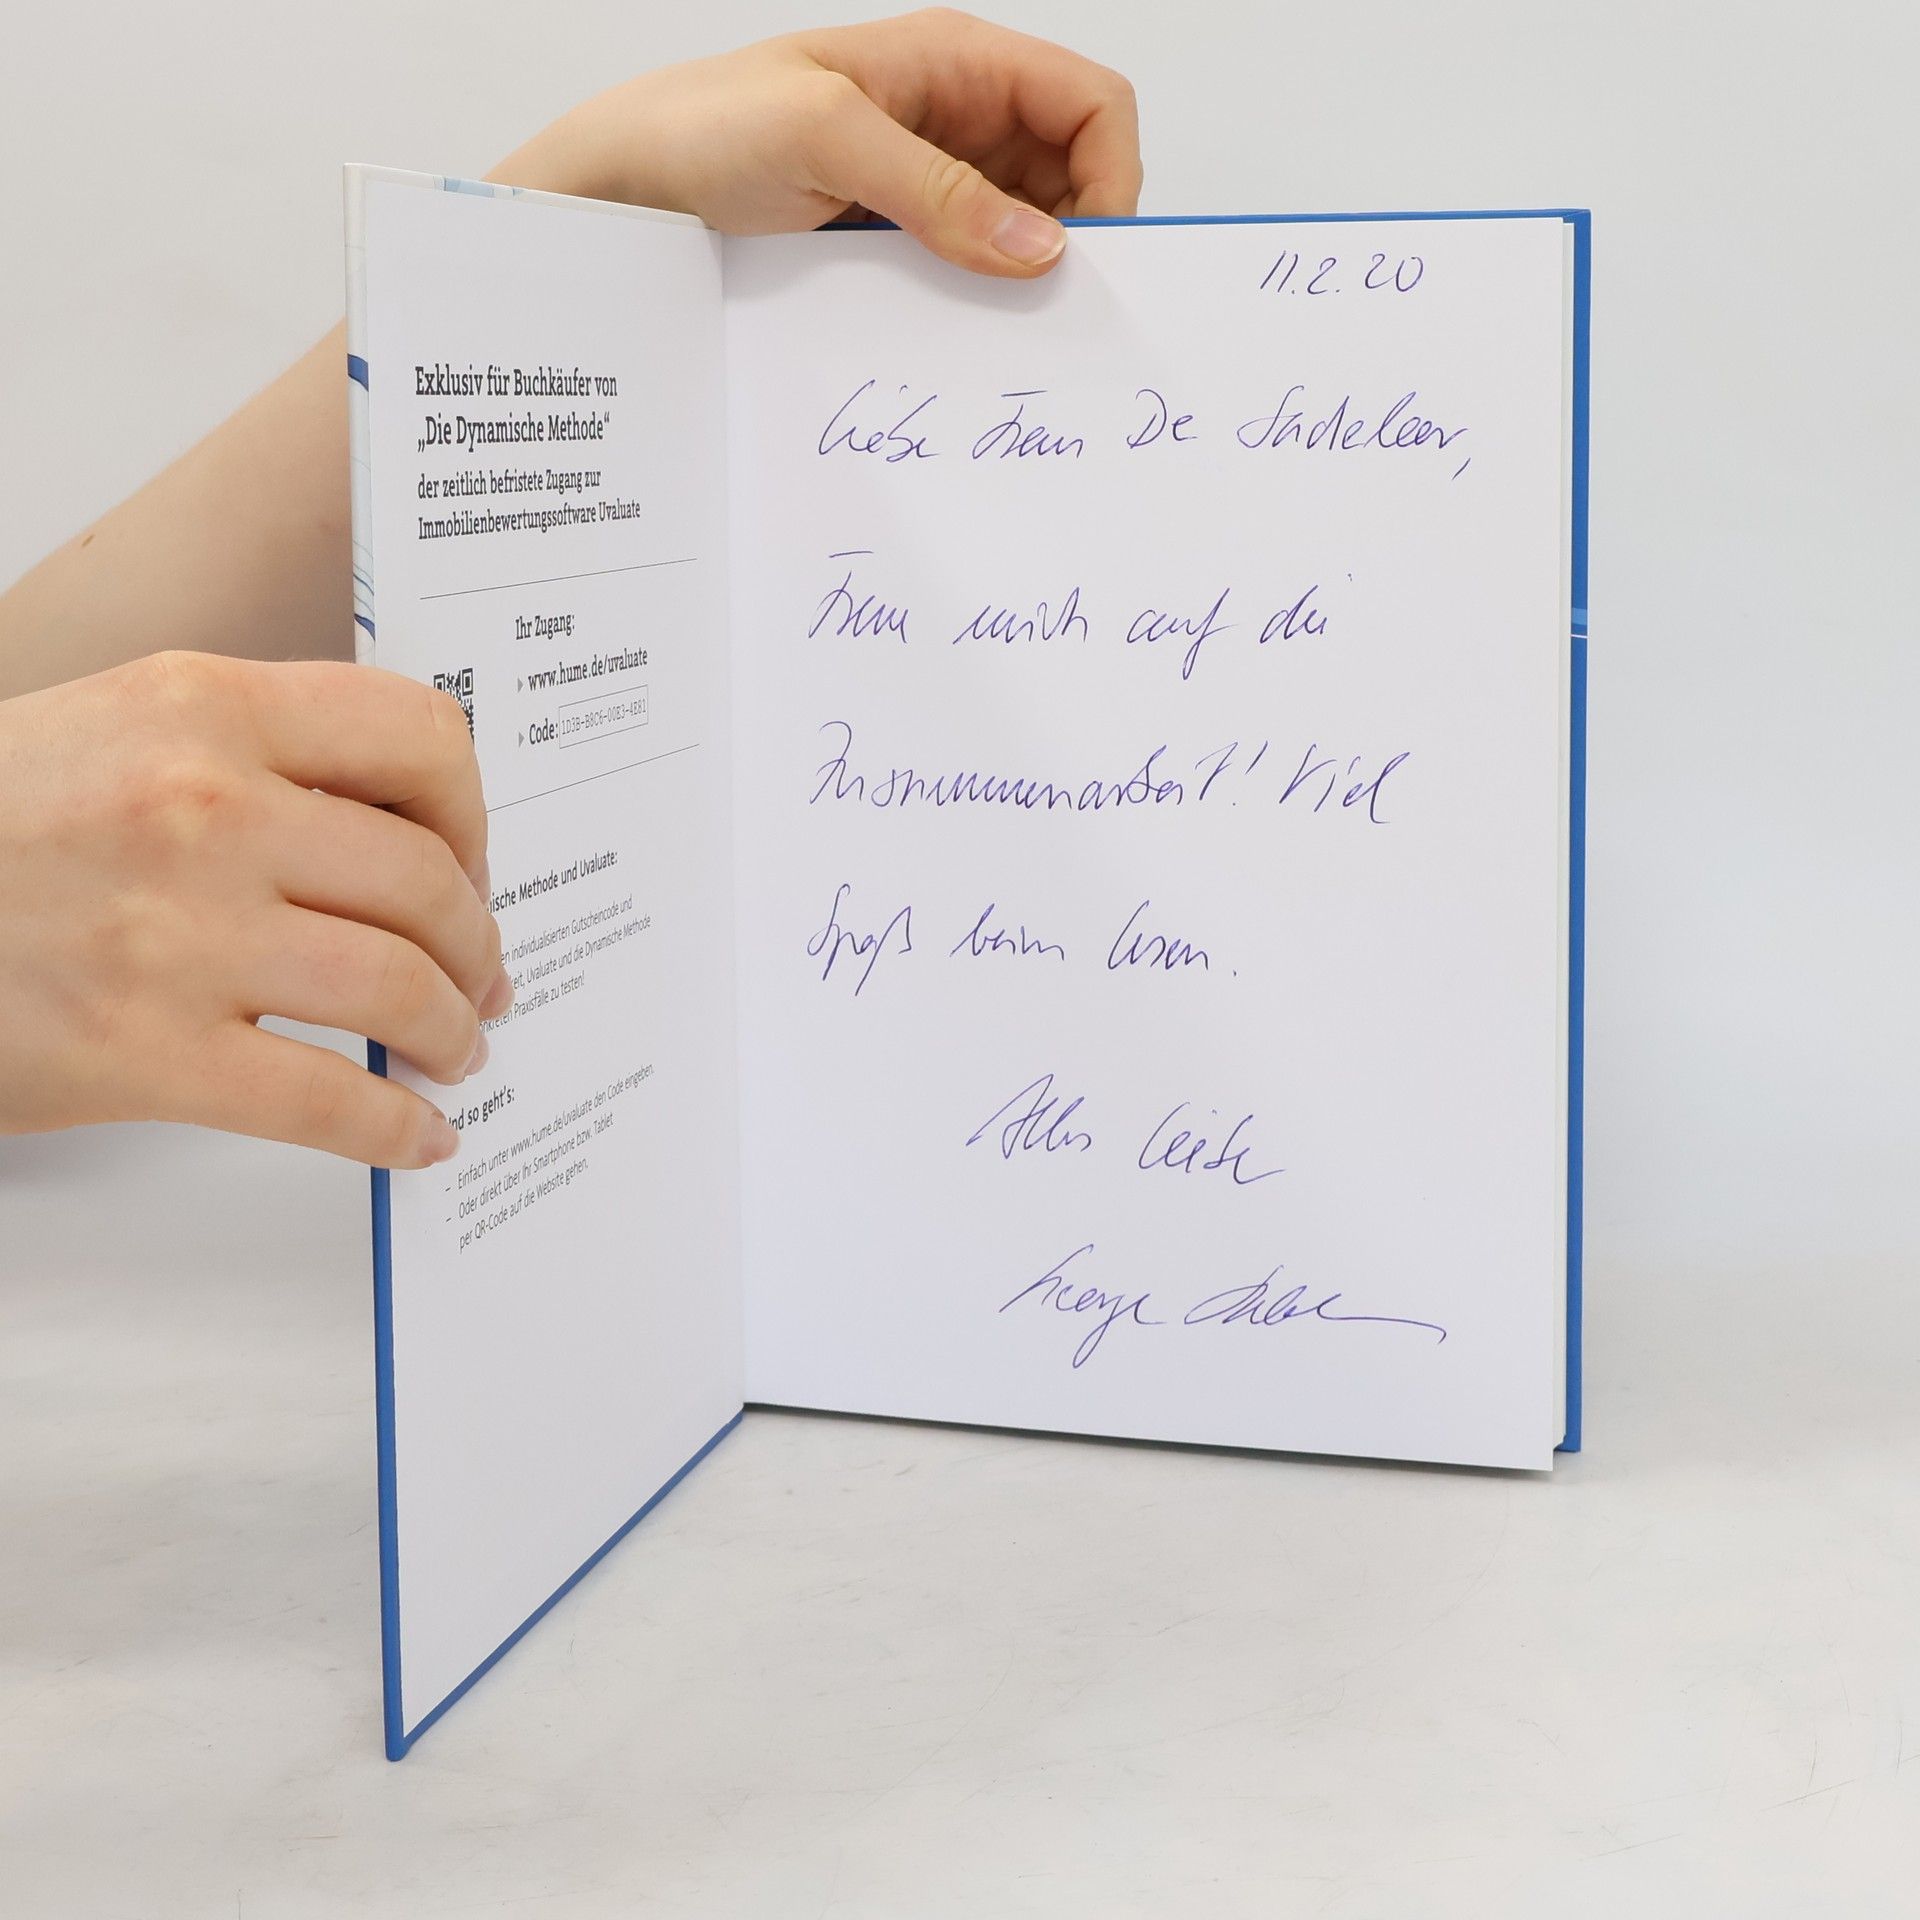 Exklusiv für Buchkäufer von
„Die Dynamische Methode“
der zeitlich befristete Zugang zur
Immobilienbewertungssoftware Uvaluate
Ihr Zugang:
www.hume.de/uvaluate
Code: 1D3B-B8C6-00E3-4E81
ische Methode und Uvaluate:
en individualisierten Gutscheincode und
keit, Uvaluate und die Dynamische Methode
nkreten Praxisfälle zu testen!
nd so geht's:
– Einfach unter www.hume.de/uvaluate den Code eingeben.
– Oder direkt über Ihr Smartphone bzw. Tablet
per QR-Code auf die Website gehen.
11.2.20
Liebe Frau De Sadeleer,
Freue mich auf die
Zusammenarbeit! Viel
Spaß beim Lesen.
Alles Liebe
George